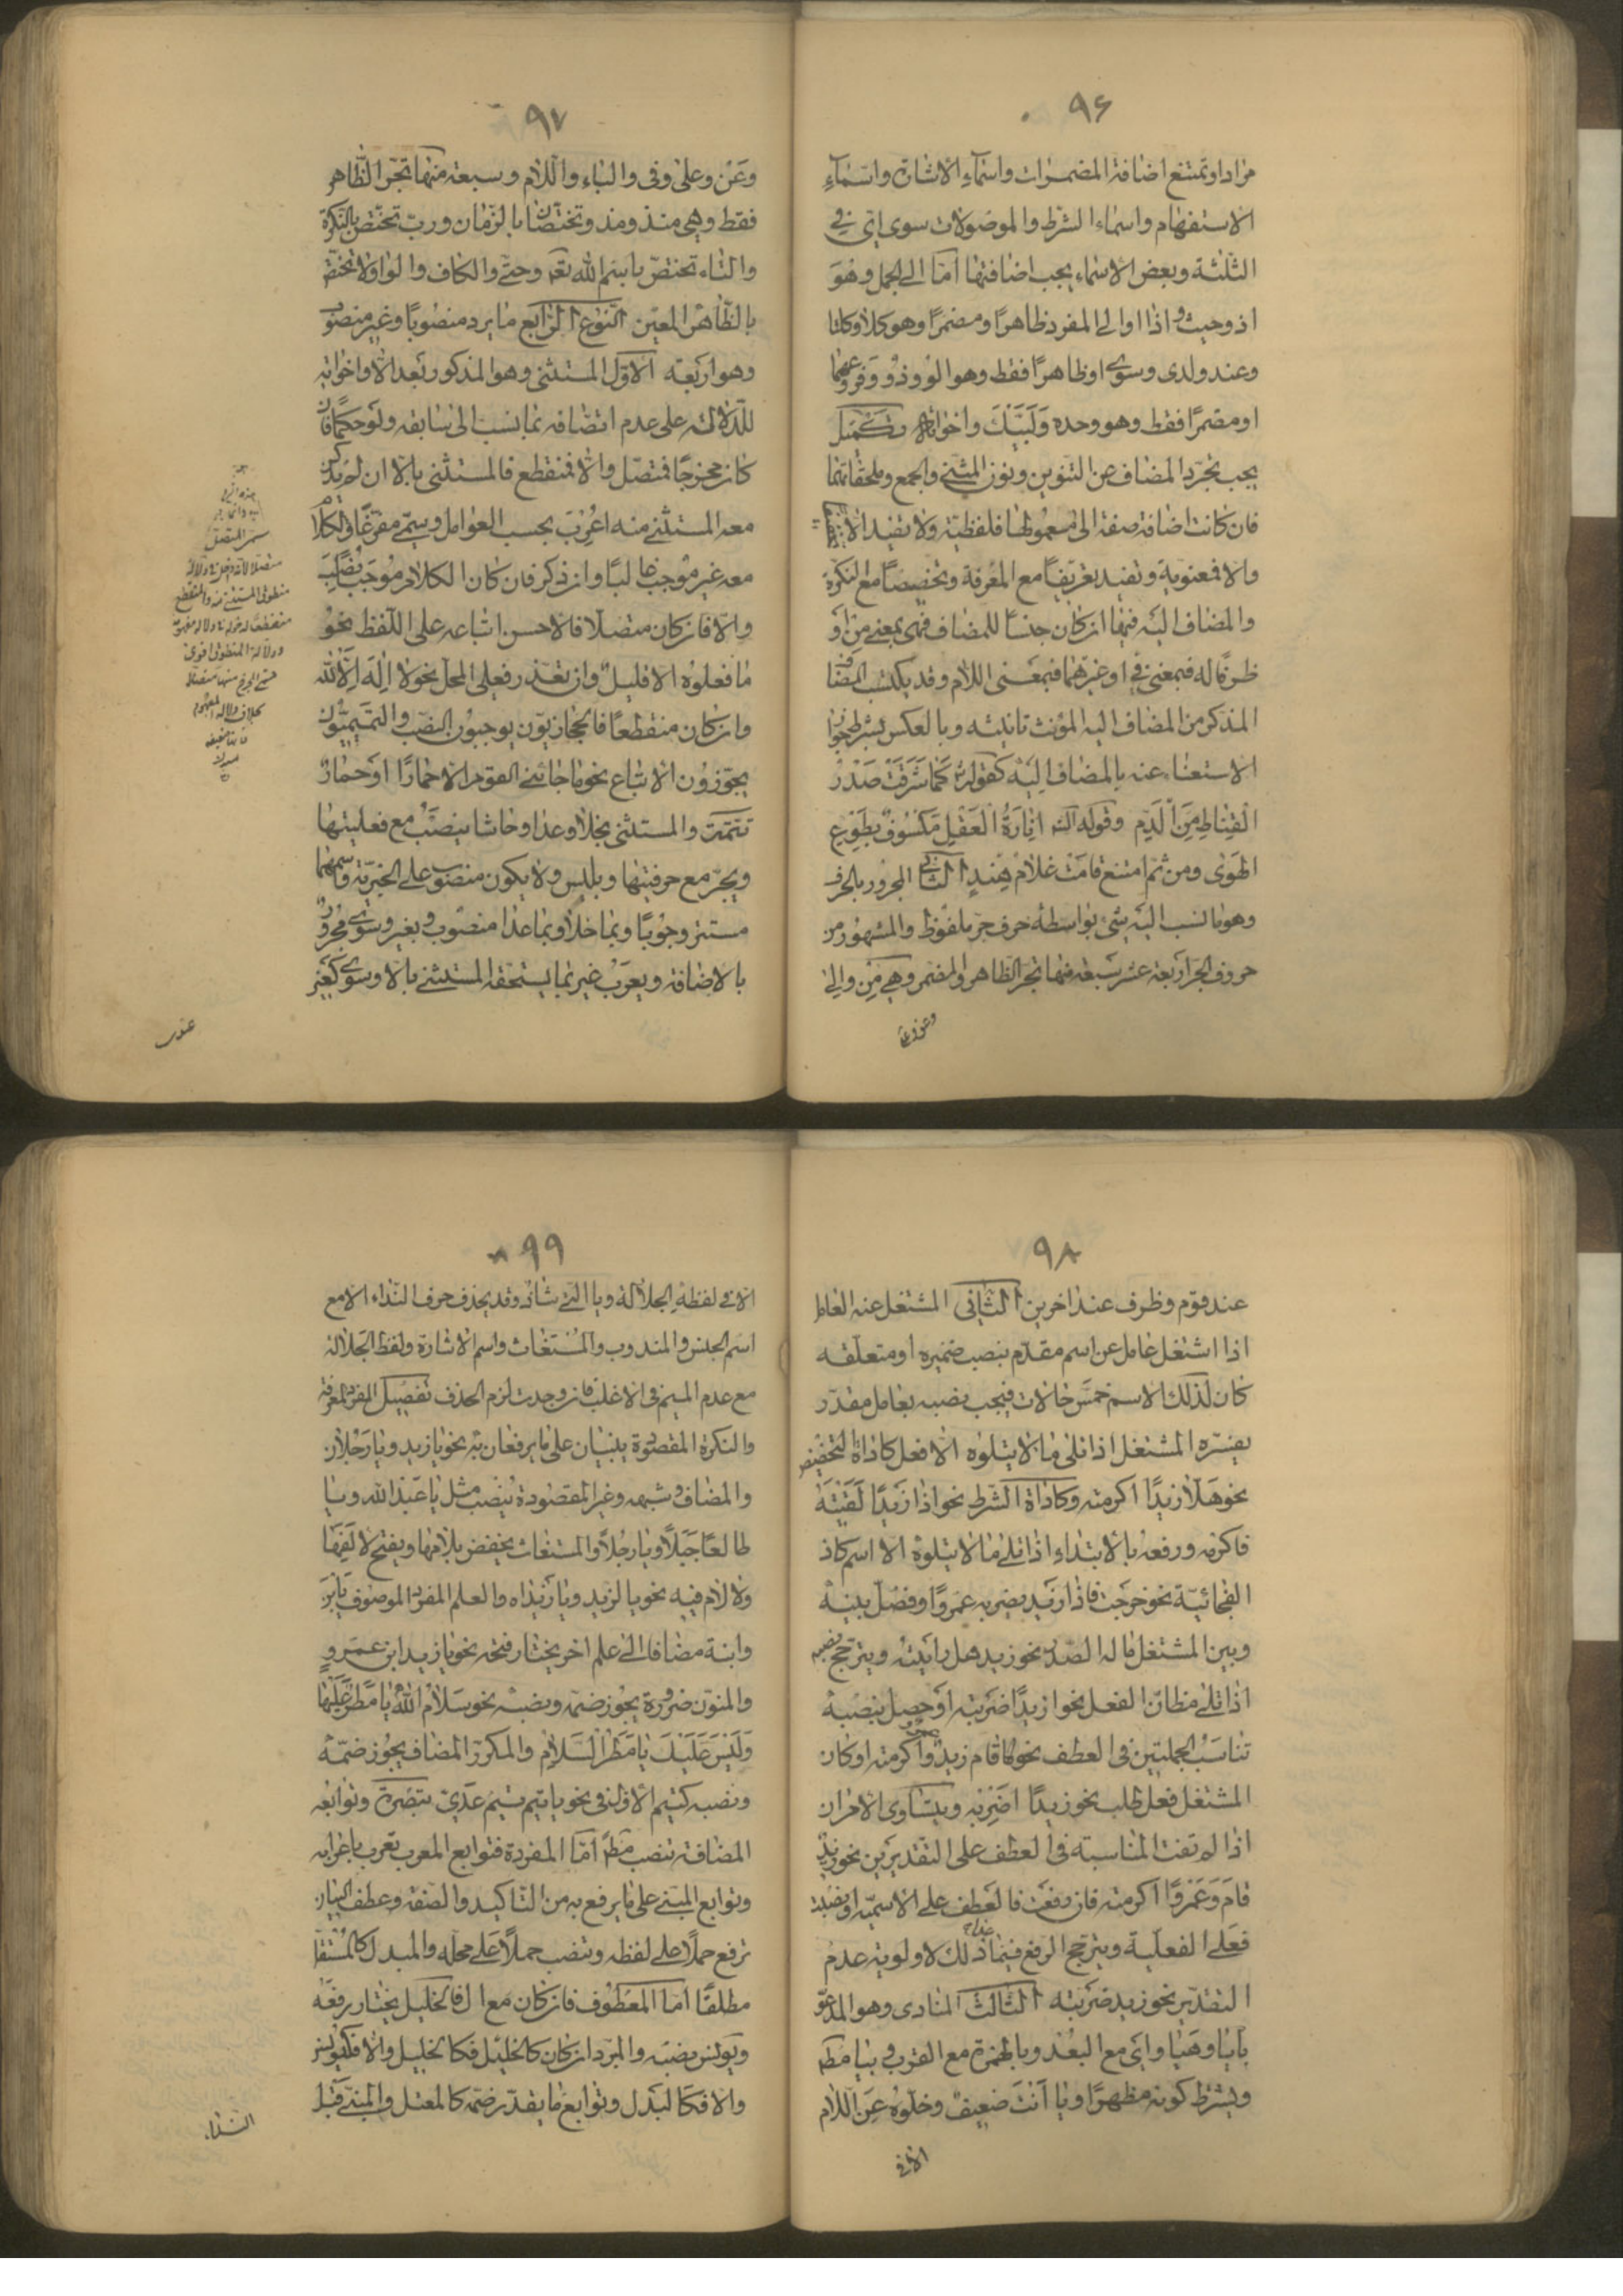 ٩۶
مرادا وتمتنع اضافة المضمرات واسمآء الأشارة واسمآء
الاستفهام واسماء الشرط والموصولات سوى اىّ فى
الثلثة وبعض الاسماء يجب اضافتها امّا الى الجمل وهو
اذ وحيث واذا او الى المفرد ظاهرًا ومضمرًا وهو كلا وكلتا
وعند ولدى وسوى او ظاهرًا فقط وهو اولو وذو وفروعهما
او مضمرًا فقط وهو وحده ولبّيك واخواته تكميل
يجب تجرّد المضاف عن التنوين ونون المثنى والجمع وملحقاتهما
فان كانت اضافة صفة الى معمولها فلفظية ولا تفيد الا
والا فمعنوية وتفيد تعريفًا مع المعرفة وتخصيصًا مع النكرة
والمضاف اليه فيها ان كان جنسًا للمضاف فهى بمعنى من او
ظرفًا له فبمعنى فى او غيرهما فبمعنى اللام وقد يكتسب المضاف
المذكر من المضاف اليه المؤنث تانيثه وبالعكس بشرط جواز
الاستغناء عنه بالمضاف اليه كقوله كما شرقت صدر
القناة من الدّم وقوله انارة العقل مكسوف بطوع
الهوى ومن ثم امتنع قامت غلام هند الثانى المجرور بالحرف
وهو ما نسب اليه شئ بواسطة حرف جرّ ملفوظ والمشهور من
حروف الجر اربعة عشر سبعة منها تجر الظاهر والمضمر وهى من والى
٩٧
وعن وعلى وفى والباء واللام وسبعة منها تجر الظاهر
فقط وهى منذ ومذ وتختصّان بالزمان وربّ تختص بالنكرة
والتاء تختصّ باسم الله تعه وحتى والكاف والواو ولا تختص
بالظاهر المعين النوع الرابع ما يرد منصوبًا وغير منصوب
وهو اربعة الاول المستثنى وهو المذكور بعد الا واخواته
للدلالة على عدم اتصافه بما نسب الى سابقه ولو حكمًا فان
كان مخرجًا فمتصل والا فمنقطع فالمستثنى بالا ان لم يذكر
معه المستثنى منه اعرب بحسب العوامل وسمّى مفرغًا والكلام
معه غير موجب غالبًا وان ذكر فان كان الكلام موجبًا نصب
والا فان كان متصلا فالاحسن اتباعه على اللفظ نحو
ما فعلوه الا قليل وان تعذر فعلى المحل نحو لا اله الا الله
وان كان منقطعًا فالحجازيّون يوجبون النصب والتميميّون
يجوّزون الاتباع نحو ما جائنى القوم الا حمارًا او حمارٌ
تتمة والمستثنى بخلا وعدا وحاشا ينصب مع فعليتها
ويجرّ مع حرفيتها وبليس ولا يكون منصوب على الخبرية واسمهما
مستتر وجوبًا وبما خلا وبما عدا منصوب وبغير وسوى مجرور
بالاضافة ويعرب غير بما يستحقه المستثنى بالا وسوى كغير
٩٨
عند قوم وظرف عند اخرين الثانى المشتغل عنه العامل
اذا اشتغل عامل عن اسم مقدّم بنصب ضميره او متعلقه
كان لذلك الاسم خمس حالات فيجب نصبه بعامل مقدّر
يفسّره المشتغل اذا تلى ما لا يتلوه الا فعل كاداة التحضيض
نحو هلا زيدًا اكرمته وكاداة الشرط نحو اذا زيدًا لقيته
فاكرمه ورفعه بالابتداء اذا تلى ما لا يتلوه الا اسم كاذا
الفجائية نحو خرجت فاذا زيد يضربه عمرو او فصل بينه
وبين المشتغل ما له الصدر نحو زيد هل رايته ويترجح نصبه
اذا تلى مظانّ الفعل نحو ازيدًا ضربته او حصل بنصبه
تناسب الجملتين فى العطف نحو قام زيد وعمروا اكرمته او كان
المشتغل فعل طلب نحو زيدًا اضربه ويتساوى الامران
اذا لم تفت المناسبة فى العطف على التقديرين نحو زيد
قام وعمروًا اكرمته فان رفعت فالعطف على الاسمية او نصبت
فعلى الفعلية ويترجح الرفع فيما عدا ذلك لاولوية عدم
التقدير نحو زيد ضربته الثالث المنادى وهو المدعوّ
بايا وهيا واى مع البعد وبالهمزة مع القرب وبيا مطم
ويشترط كونه مظهرًا ويا انت ضعيف وخلوّه عن اللام
الا فى
٩٩
الا فى لفظة الجلالة ويا التى شاذّ وقد يحذف حرف النداء الا مع
اسم الجنس والمندوب والمستغاث واسم الاشارة ولفظ الجلالة
مع عدم الميم فى الاغلب فان وجدت لزم الحذف تفصيل المفرد المعرفة
والنكرة المقصودة يبنيان على ما يرفعان به نحو يا زيد ويا رجلان
والمضاف وشبهه وغير المقصودة ينصب مثل يا عبد الله ويا
طالعًا جبلًا ويا رجلًا والمستغاث يخفض بلامها ويفتح لالفها
ولا لام فيه نحو يا لزيد ويا زيداه والعلم المفرد الموصوف بابن
وابنة مضافا الى علم اخر يختار فتحه نحو يا زيد ابن عمرو
والمنوّن ضرورة يجوز ضمّه ونصبه نحو سلام الله يا مطر عليها
وليس عليك يا مطر السلام والمكرر المضاف يجوز ضمّه
ونصبه كتيم الاول فى نحو يا تيم تيم عدىّ تبصرة وتوابعه
المضافة تنصب مطم امّا المفردة فتوابع المعرب تعرب باعرابه
وتوابع المبنى على ما يرفع به من التاكيد والصفة وعطف البيان
ترفع حملًا على لفظه وتنصب حملًا على محله والبدل كالمستقل
مطلقًا اما المعطوف فان كان مع ال فالخليل يختار رفعه
ويونس نصبه والمبرد ان كان كالخليل فكالخليل والا فكيونس
والا فكالبدل وتوابع ما يقدّر ضمّه كالمعتل والمبنى قبل
النداء